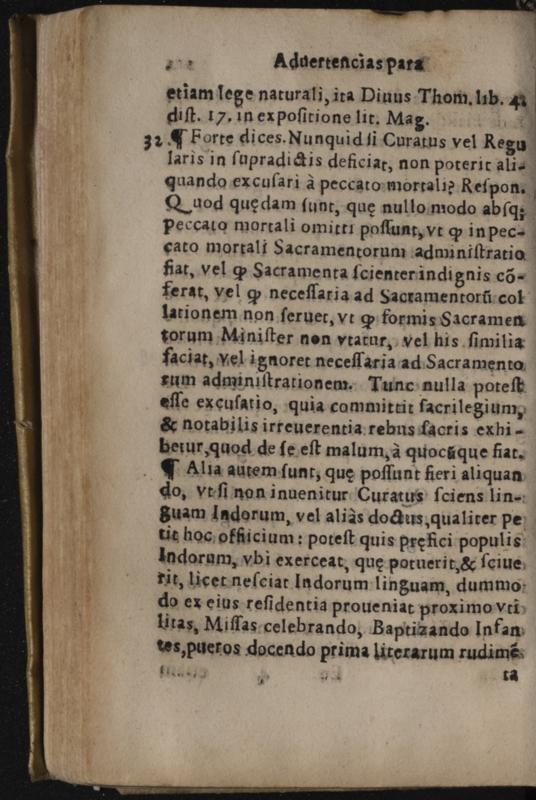 Aduertencias para
etiam lege naturali, ita Diuus Thom. lib. 4.
dist. 17. in expositione lit. Mag.
32. ¶ Forte dices. Nunquid si Curatus vel Regu
laris in supradictis deficiat, non poterit ali-
quando excusari à peccato mortali? Respon.
Quod quędam sunt, quę nullo modo absq;
peccato mortali omitti possunt, vt ꝙ in pec-
cato mortali Sacramentorum administratio
fiat, vel ꝙ Sacramenta scienter indignis cō-
ferat, vel ꝙ necessaria ad Sacramentorū col
lationem non seruet, vt ꝙ formis Sacramen
torum Minister non vtatur, vel his similia
faciat, vel ignoret necessaria ad Sacramento
rum administrationem. Tunc nulla potest
esse excusatio, quia committit sacrilegium,
& notabilis irreuerentia rebus sacris exhi-
betur, quod de se est malum, à quocūque fiat.
¶ Alia autem sunt, quę possunt fieri aliquan
do, vt si non inuenitur Curatus sciens lin-
guam Indorum, vel aliàs doctus, qualiter pe
tit hoc offiicium: potest quis pręfici populis
Indorum, vbi exerceat, quę potuerit, & sciue
rit, licet nesciat Indorum linguam, dummo
do ex eius residentia proueniat proximo vti
litas, Missas celebrando, Baptizando Infan
tes, pueros docendo prima literarum rudimē
ta